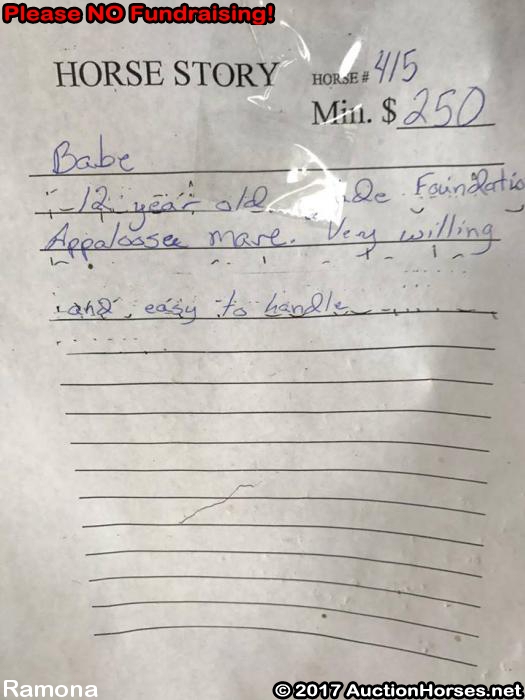 Please NO Fundraising!
HORSE STORY HORSE # 415
Min. $ 250
Babe
-12 year old Foundatio
Appaloosa mare. Very willing
and easy to handle
Ramona
© 2017 AuctionHorses.net